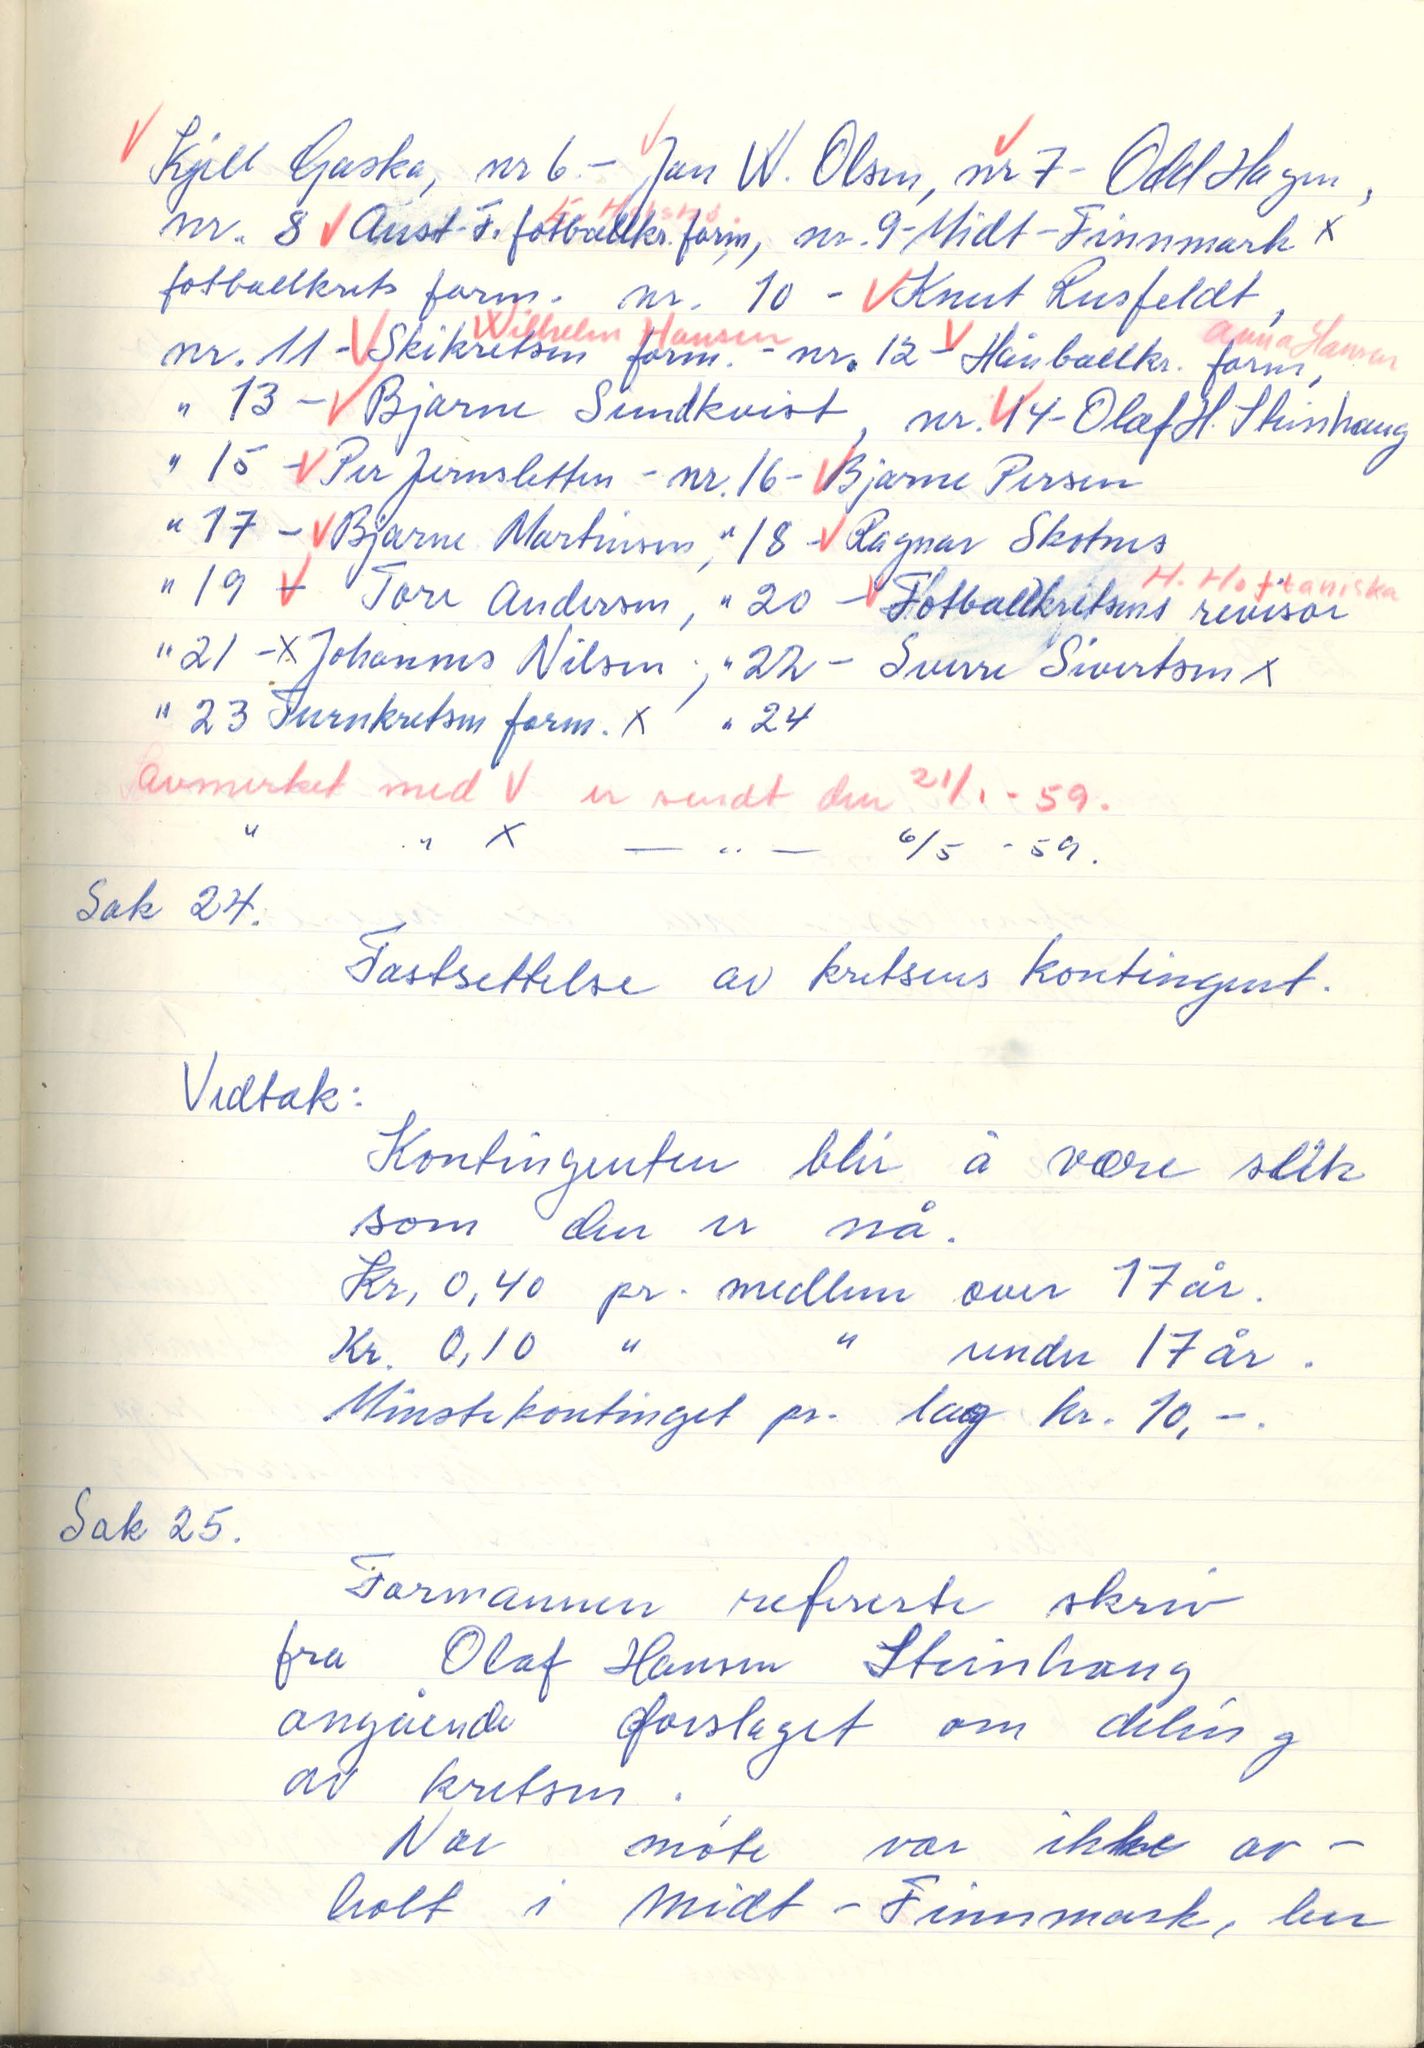 V Kjell Gaska, nr 6 - V Jan W. Olsen, V nr 7 - Odd Hagen,
nr. 8 V Aust-F. fotballkr. form, nr. 9 - Midt-Finnmark X
fotballkrets form. nr. 10 - V Knut Rusfeldt,
X Wilhelm Hansen Anna Hansen
nr. 11 - V Skikretsen form. - nr. 12 - V Håndballkr. form,
" 13 - V Bjarne Sundkvist, nr. V 14 - Olaf H. Steinhaug
" 15 - V Per Jernsletten - nr. 16 - V Bjarne Persen
" 17 - V Bjarne Martinsen, " 18 - V Ragnar Skotnes
H. Hottaniska
" 19 V - Tore Andersen, " 20 - V Fotballkretsens revisor
" 21 - X Johannes Nilsen, " 22 - Sverre Sivertsen X
" 23 Turnkretsen form. X " 24
avmerket med V er sendt den 21/1 - 59.
" " X — " — 6/5 - 59.
Sak 24.
Fastsettelse av kretsens kontingent.
Vedtak:
Kontingenten blir å være slik
som den er nå.
Kr, 0,40 pr. medlem over 17 år.
Kr. 0,10 " " under 17 år.
Minstekontinget pr. lag kr. 10,-.
Sak 25.
Formannen refererte skriv
fra Olaf Hansen Steinhaug
angående forslaget om deling
av kretsen.
Noe møte var ikke av-
holt i Midt-Finnmark, her